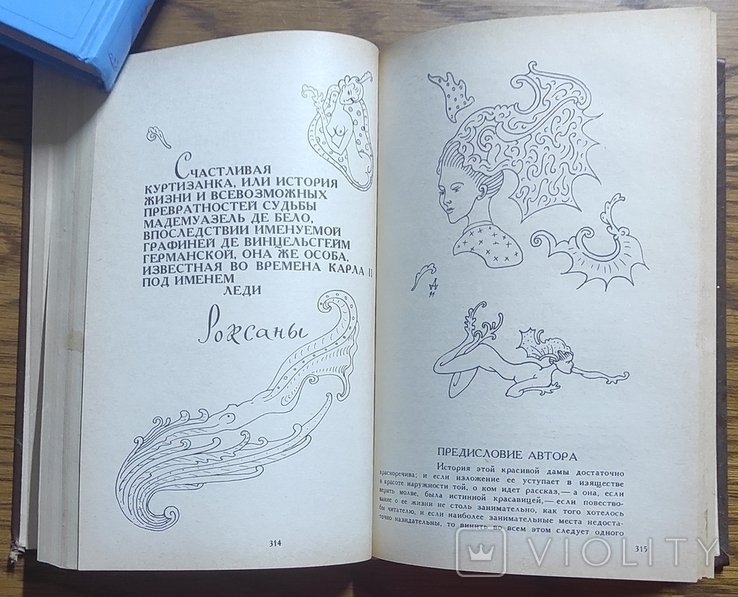 Счастливая
куртизанка, или история
жизни и всевозможных
превратностей судьбы
мадемуазель де Бело,
впоследствии именуемой
графиней де Винцельсгейм
германской, она же особа,
известная во времена Карла II
под именем
леди
Роксаны
314
ПРЕДИСЛОВИЕ АВТОРА
История этой красивой дамы достаточно
красноречива; и если изложение ее уступает в изяществе
и красоте наружности той, о ком идет рассказ,— а она, если
верить молве, была истинной красавицей,— если повество-
вание о ее жизни не столь занимательно, как того хотелось
бы читателю, и если наиболее занимательные места недоста-
точно назидательны, то винить во всем этом следует одного
315
VIOLITY